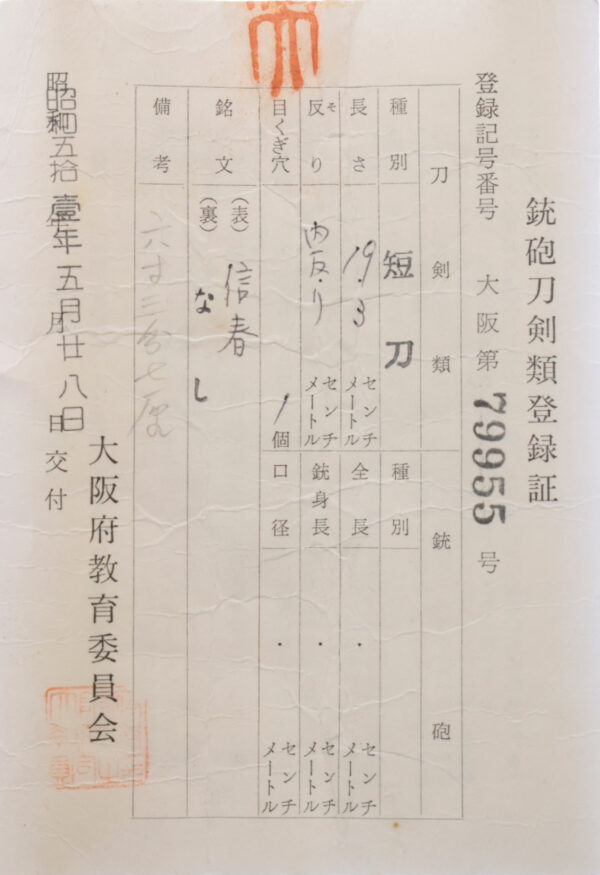 銃砲刀剣類登録証
登録記号番号 大阪第 79955 号
刀剣類 銃砲
種別 短刀 種別
長さ 19.3 センチメートル 全長 ・ センチメートル
反り ソリ 内反り センチメートル 銃身長 ・ センチメートル
目くぎ穴 1個 口径 ・ センチメートル
銘文 (表) 信春
(裏) なし
備考 六寸三分七厘
昭和五拾壹年五月廿八日交付
大阪府教育委員会